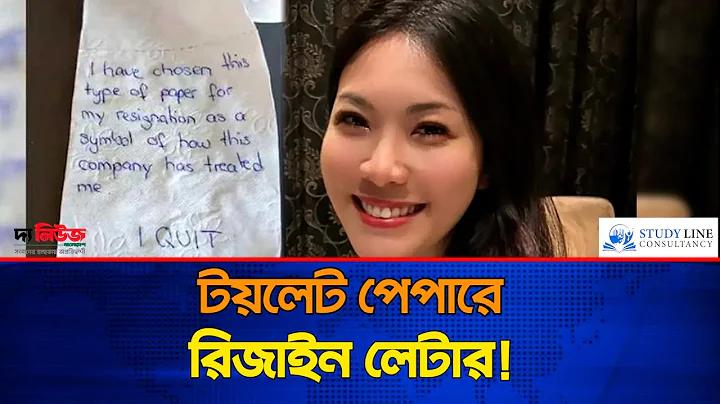 I have chosen this
type of paper for
my resignation as a
symbol of how this
company has treated
me
I QUIT
দ্য নিউজ
STUDY LINE
CONSULTANCY
টয়লেট পেপারে
রিজাইন লেটার!